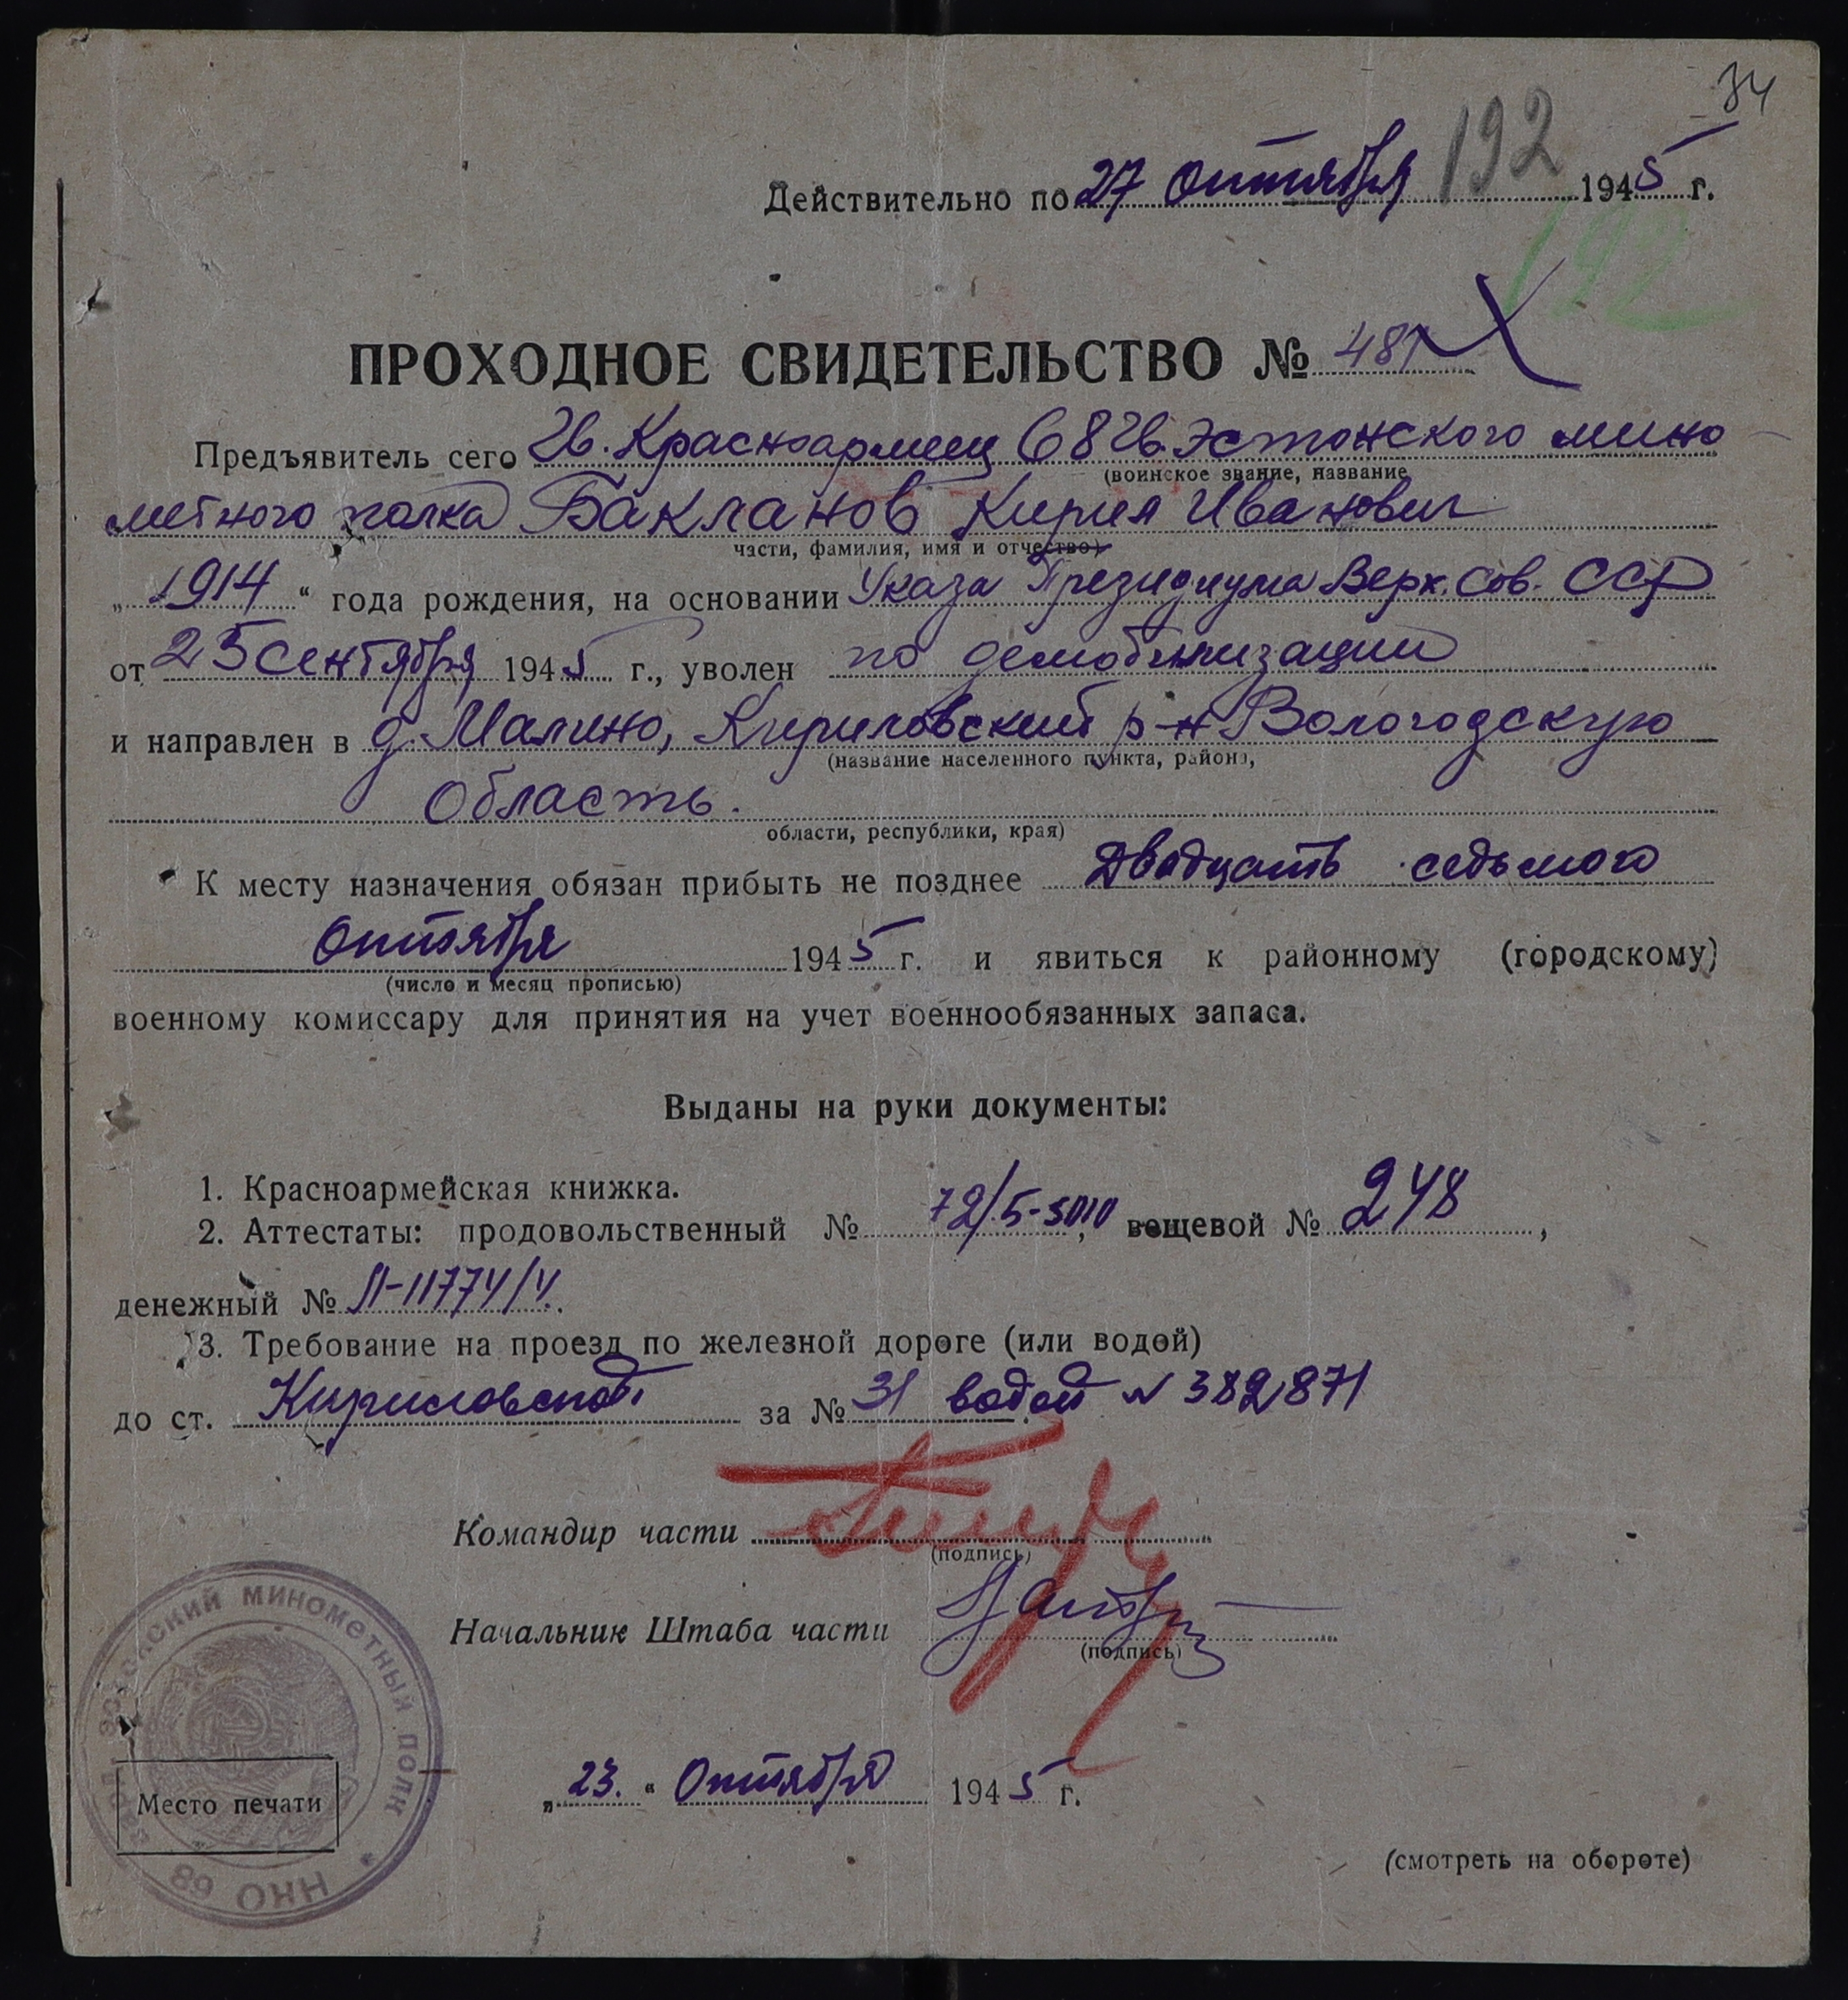 34
192
Действительно по 27 Октября 1945 г.
192
ПРОХОДНОЕ СВИДЕТЕЛЬСТВО № 481
Предъявитель сего Гв. Красноармеец 68 Гв. Эстонского мино-
(воинское звание, название
метного полка Бакланов Кирил Иванович
части, фамилия, имя и отчество)
„ 1914 “ года рождения, на основании Указа Президиума Верх. Сов. ССР
от 25 Сентября 1945 г., уволен по демобилизации
и направлен в д. Малино, Кириловский р-н Вологодскую
(название населенного пункта, района,
Область.
области, республики, края)
К месту назначения обязан прибыть не позднее Двадцать седьмого
Октября 1945 г. и явиться к районному (городскому)
(число и месяц прописью)
военному комиссару для принятия на учет военнообязанных запаса.
Выданы на руки документы:
1. Красноармейская книжка.
2. Аттестаты: продовольственный № 72/5-5010, вещевой № 248,
денежный № П-11774/4.
3. Требование на проезд по железной дороге (или водой)
до ст. Кириловской за № 31 водой № 382871
Командир части
(подпись)
Начальник Штаба части
(подпись)
ЭСТОНСКИЙ МИНОМЕТНЫЙ ПОЛК * НКО 68
Место печати
„ 23. “ Октября 1945 г.
(смотреть на обороте)